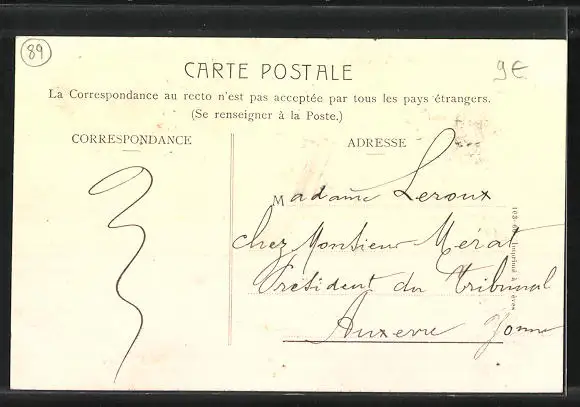 89
9€
CARTE POSTALE
La Correspondance au recto n'est pas acceptée par tous les pays étrangers.
(Se renseigner à la Poste.)
CORRESPONDANCE
ADRESSE
Madame Leroux
chez Monsieur Mérat
Président du Tribunal
Auxerre Yonne
Imprimé à